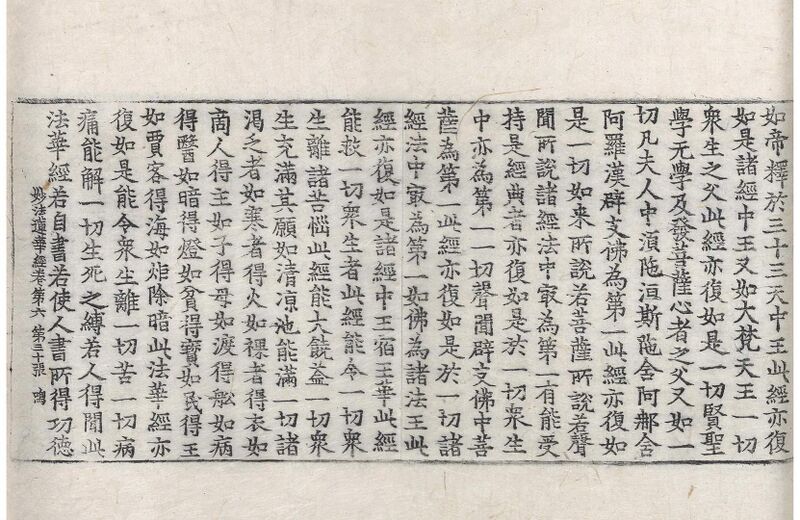 如帝釋於三十三天中王此經亦復
如是諸經中王又如大梵天王一切
衆生之父此經亦復如是一切賢聖
學无學及發菩薩心者之父又如一
切凡夫人中湏陁洹斯陁含阿那含
阿羅漢辟支佛為第一此經亦復如
是一切如来所說若菩薩所說若聲
聞所說諸經法中㝡為第一有能受
持是經典者亦復如是於一切衆生
中亦為第一一切聲聞辟支佛中菩
薩為第一此經亦復如是於一切諸
經法中㝡為第一如佛為諸法王此
經亦復如是諸經中王宿王華此經
能救一切衆生者此經能令一切衆
生離諸苦惱此經能大饒益一切衆
生充滿其願如清凉池能滿一切諸
渴乏者如寒者得火如裸者得衣如
商人得主如子得母如渡得舩如病
得醫如暗得燈如貧得寶如民得王
如賈客得海如炬除暗此法華經亦
復如是能令衆生離一切苦一切病
痛能解一切生死之縛若人得聞此
法華經若自書若使人書所得功徳
妙法蓮華經卷第六 第三十張 鳴